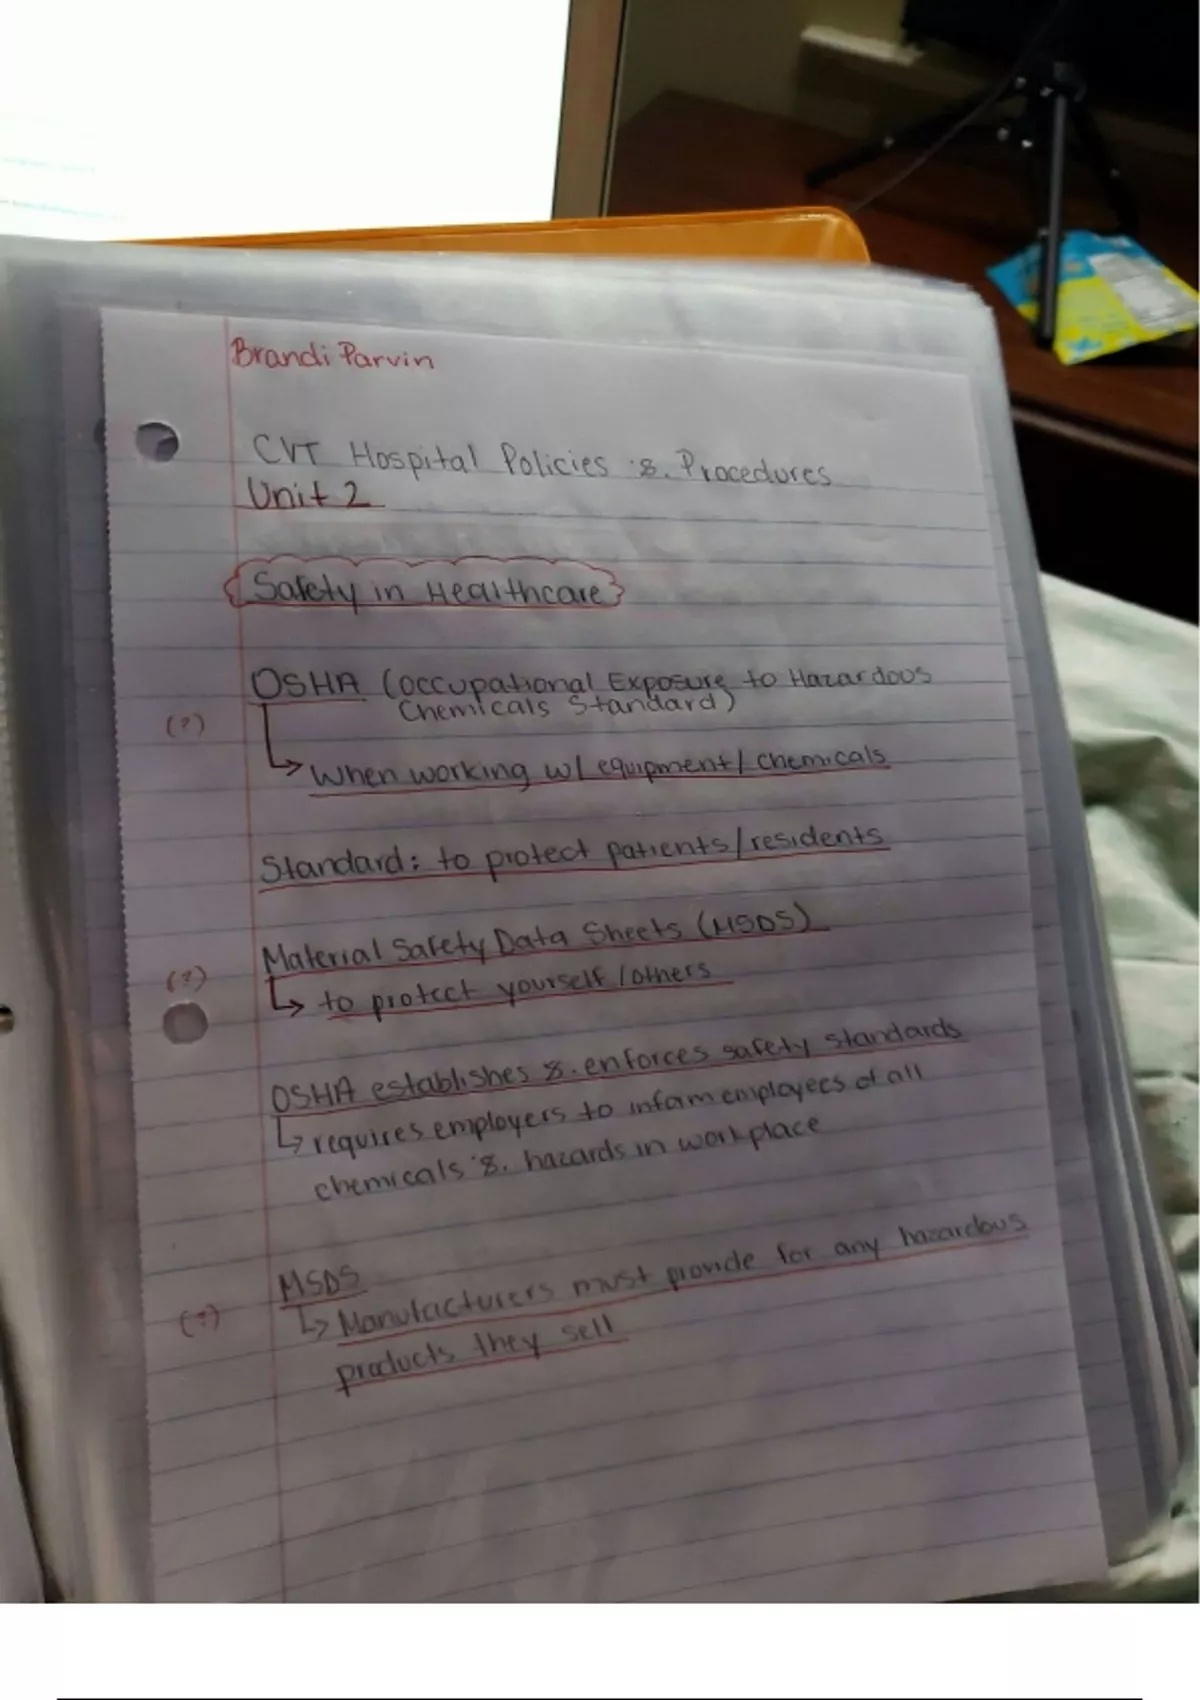 Brandi Parvin
CVT Hospital Policies & Procedures
Unit 2
Safety in Healthcare
OSHA (Occupational Exposure to Hazardous
Chemicals Standard)
(?)
When working w/ equipment/chemicals
Standard: to protect patients/residents
Material Safety Data Sheets (MSDS)
(?)
to protect yourself/others
OSHA establishes & enforces safety standards
requires employers to inform employees of all
chemicals & hazards in workplace
MSDS
(?)
Manufacturers must provide for any hazardous
products they sell